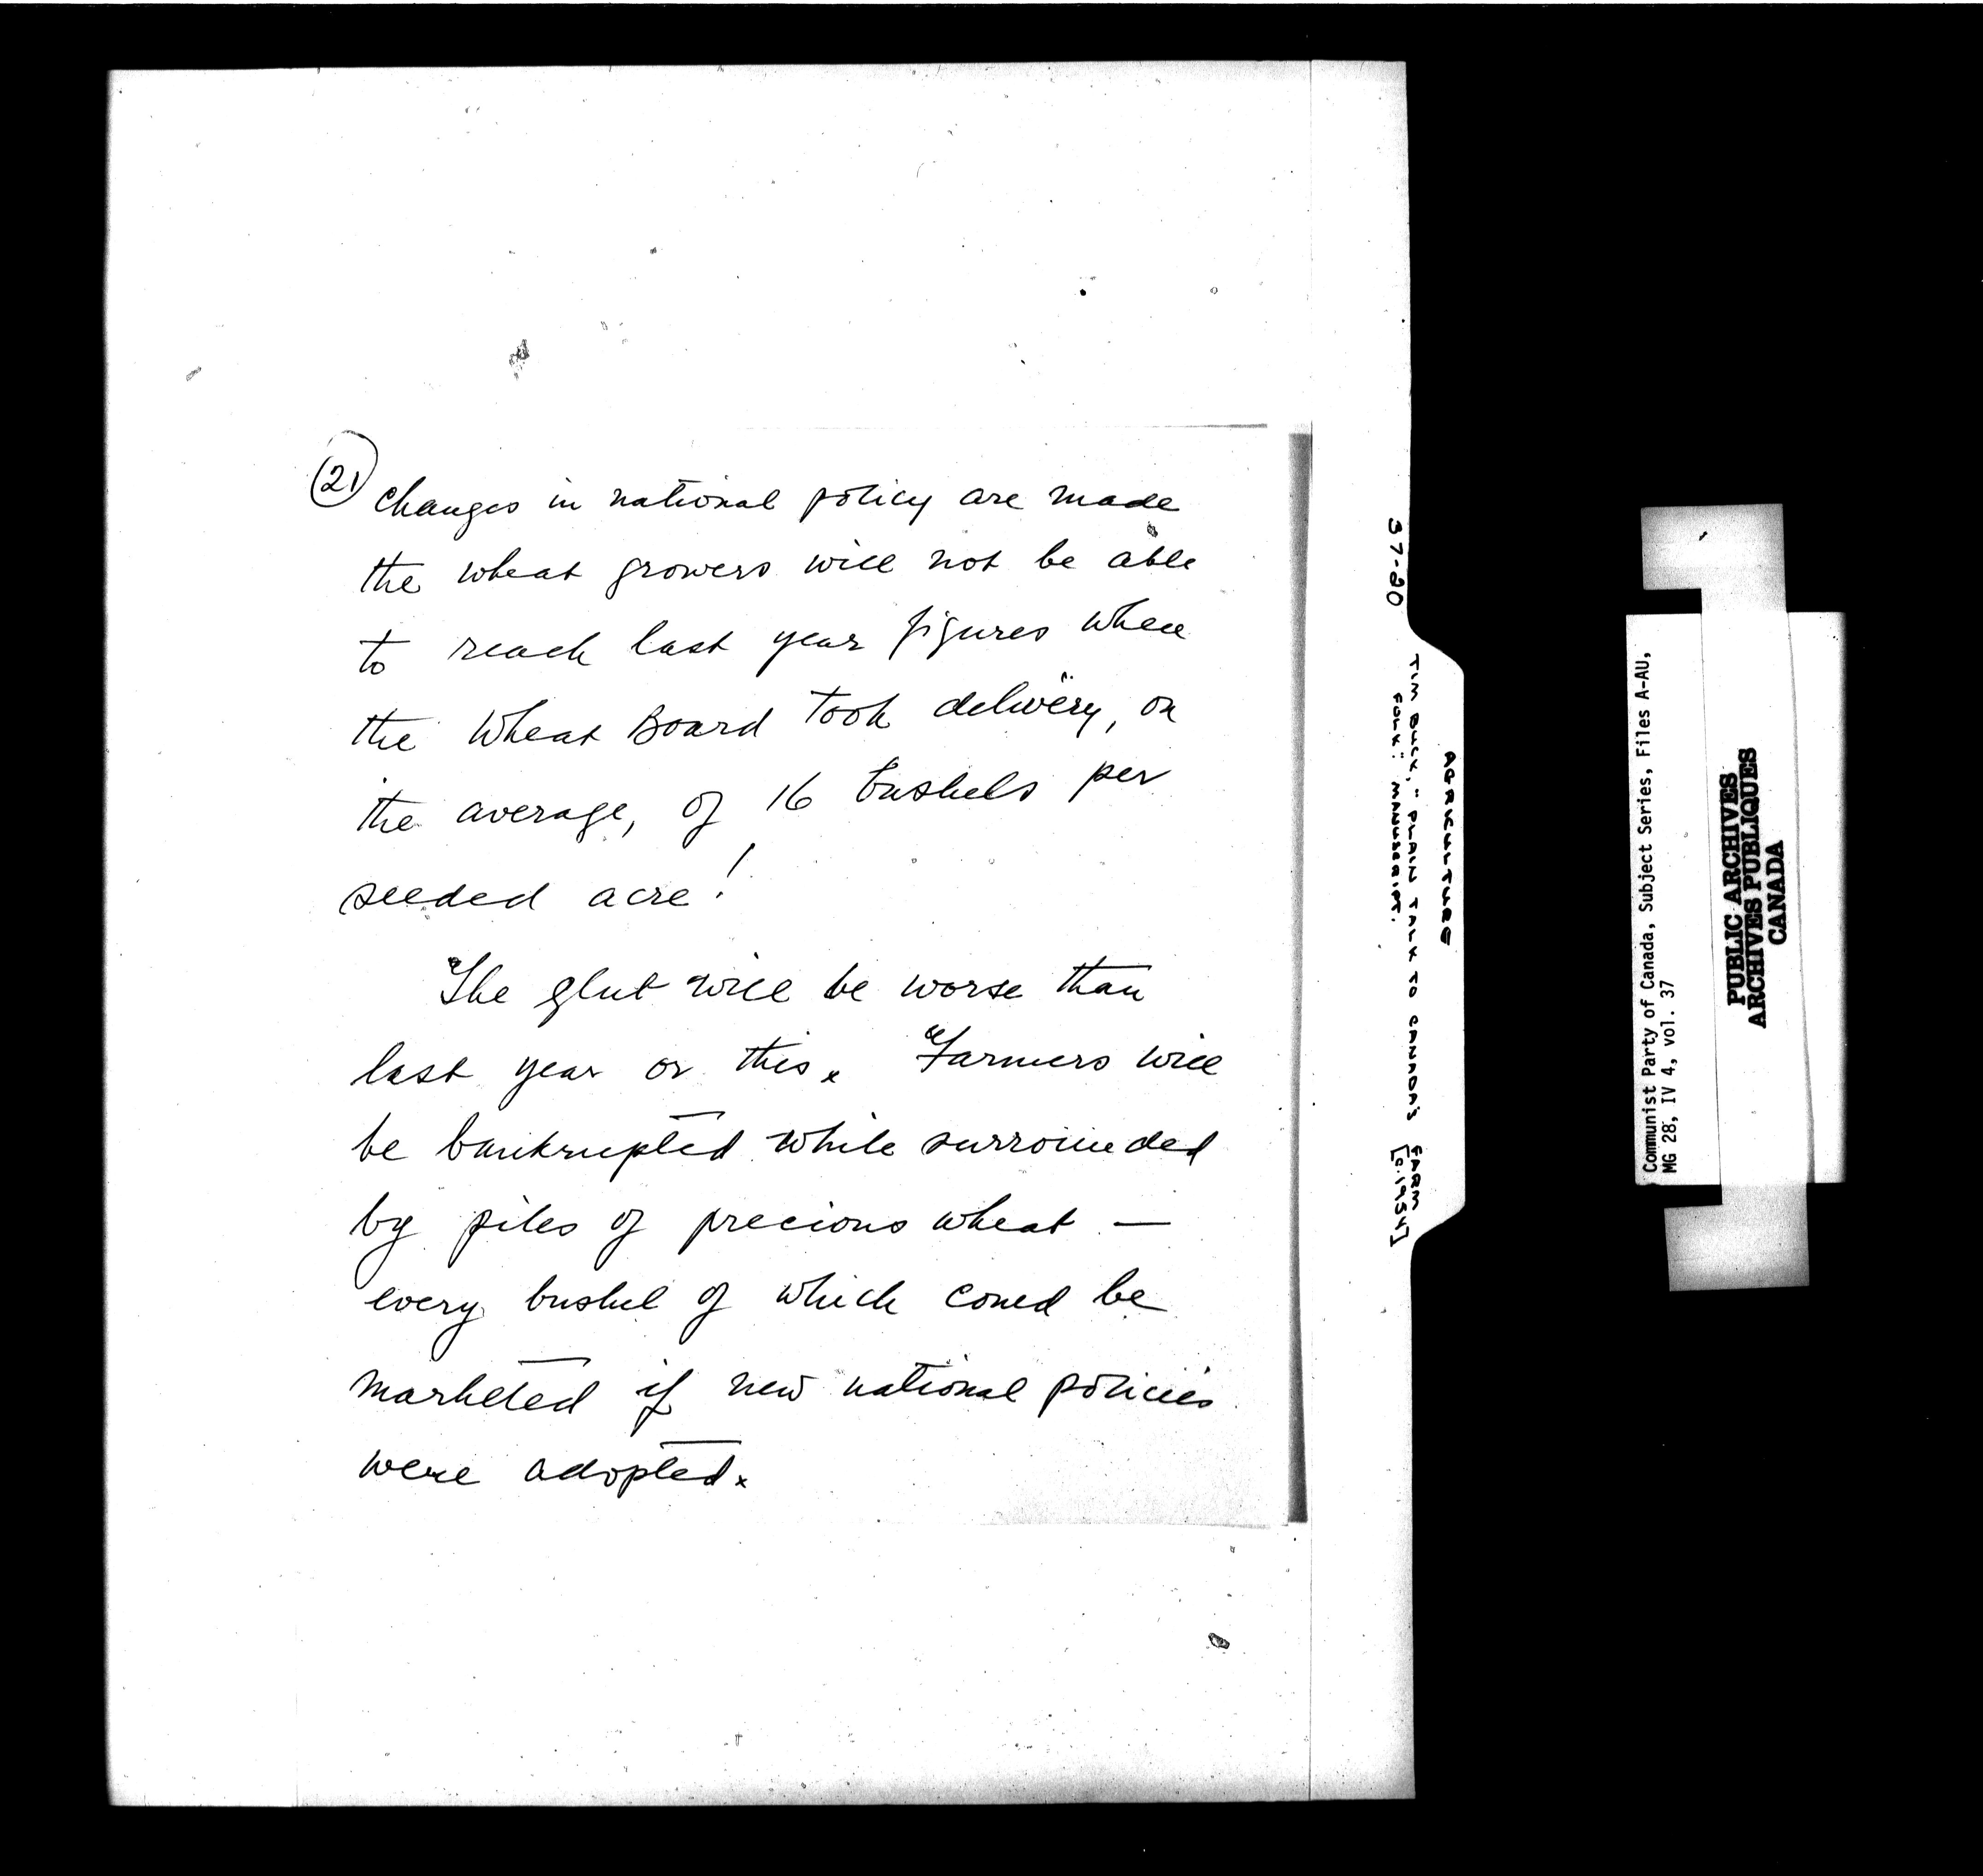 (21) Changes in national policy are made
the wheat growers will not be able
to reach last year figures when
the Wheat Board took delivery, on
the average, of 16 bushels per
seeded acre!
The glut will be worse than
last year or this. Farmers will
be bankrupted while surrounded
by piles of precious wheat —
every bushel of which could be
marketed if new national policies
were adopted.
37-20
AGRICULTURE
TIM BUCK, "PLAIN TALK TO CANADA'S FARM
FOLK": MANUSCRIPT. [c.1954]
Communist Party of Canada, Subject Series, Files A-AU,
MG 28, IV 4, vol. 37
PUBLIC ARCHIVES
ARCHIVES PUBLIQUES
CANADA